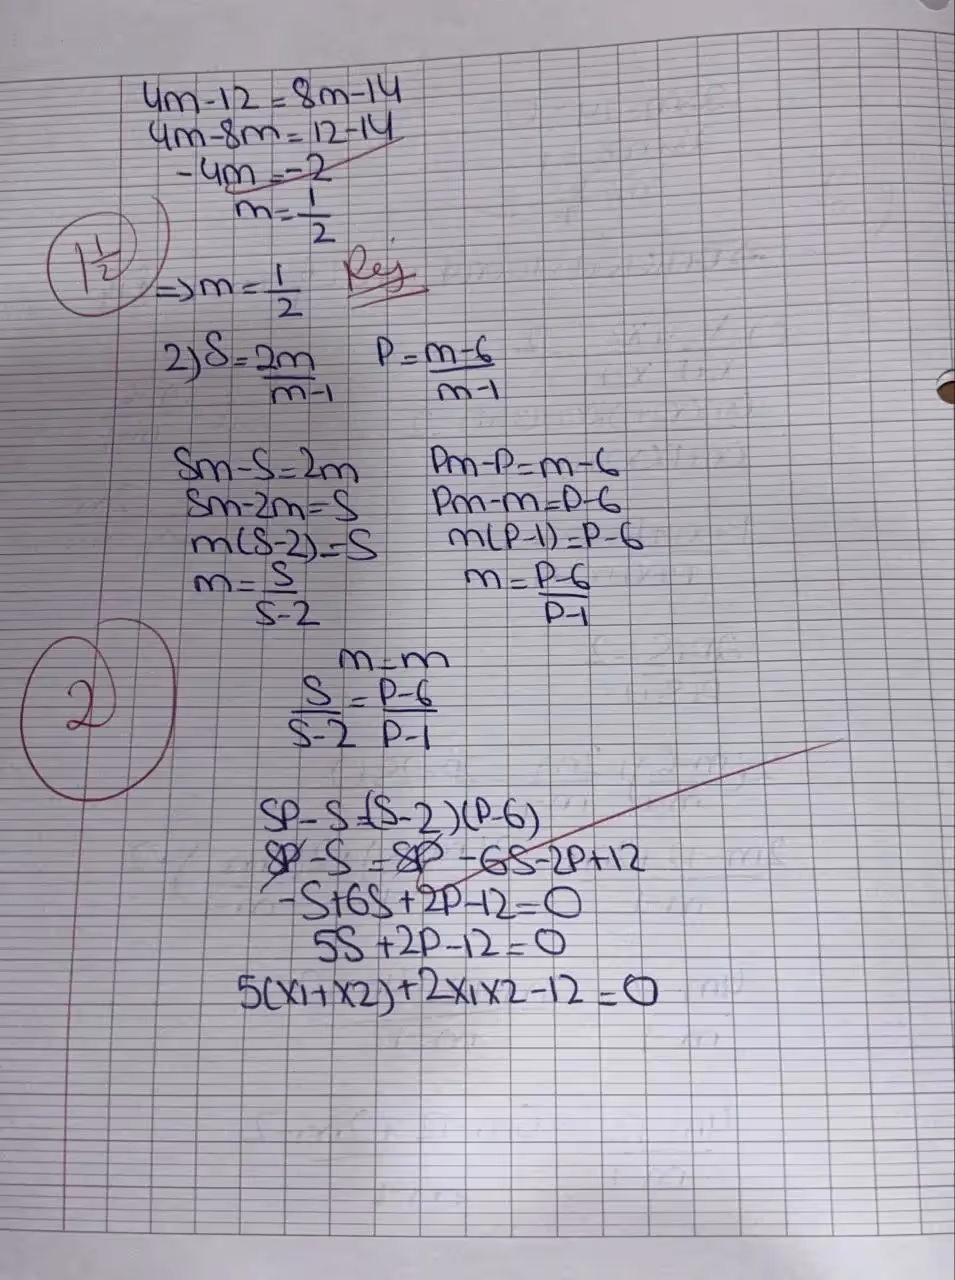 4m-12=8m-14
4m-8m=12-14
-4m=-2
m=1/2
1 1/2
=>m=1/2 Rej
2) S=2m/m-1 P=m-6/m-1
Sm-S=2m Pm-P=m-6
Sm-2m=S Pm-m=P-6
m(S-2)=S m(P-1)=P-6
m=S/S-2 m=P-6/P-1
m=m
2
S/S-2=P-6/P-1
SP-S=(S-2)(P-6)
SP-S=SP-6S-2P+12
-S+6S+2P-12=0
5S+2P-12=0
5(x1+x2)+2x1x2-12=0